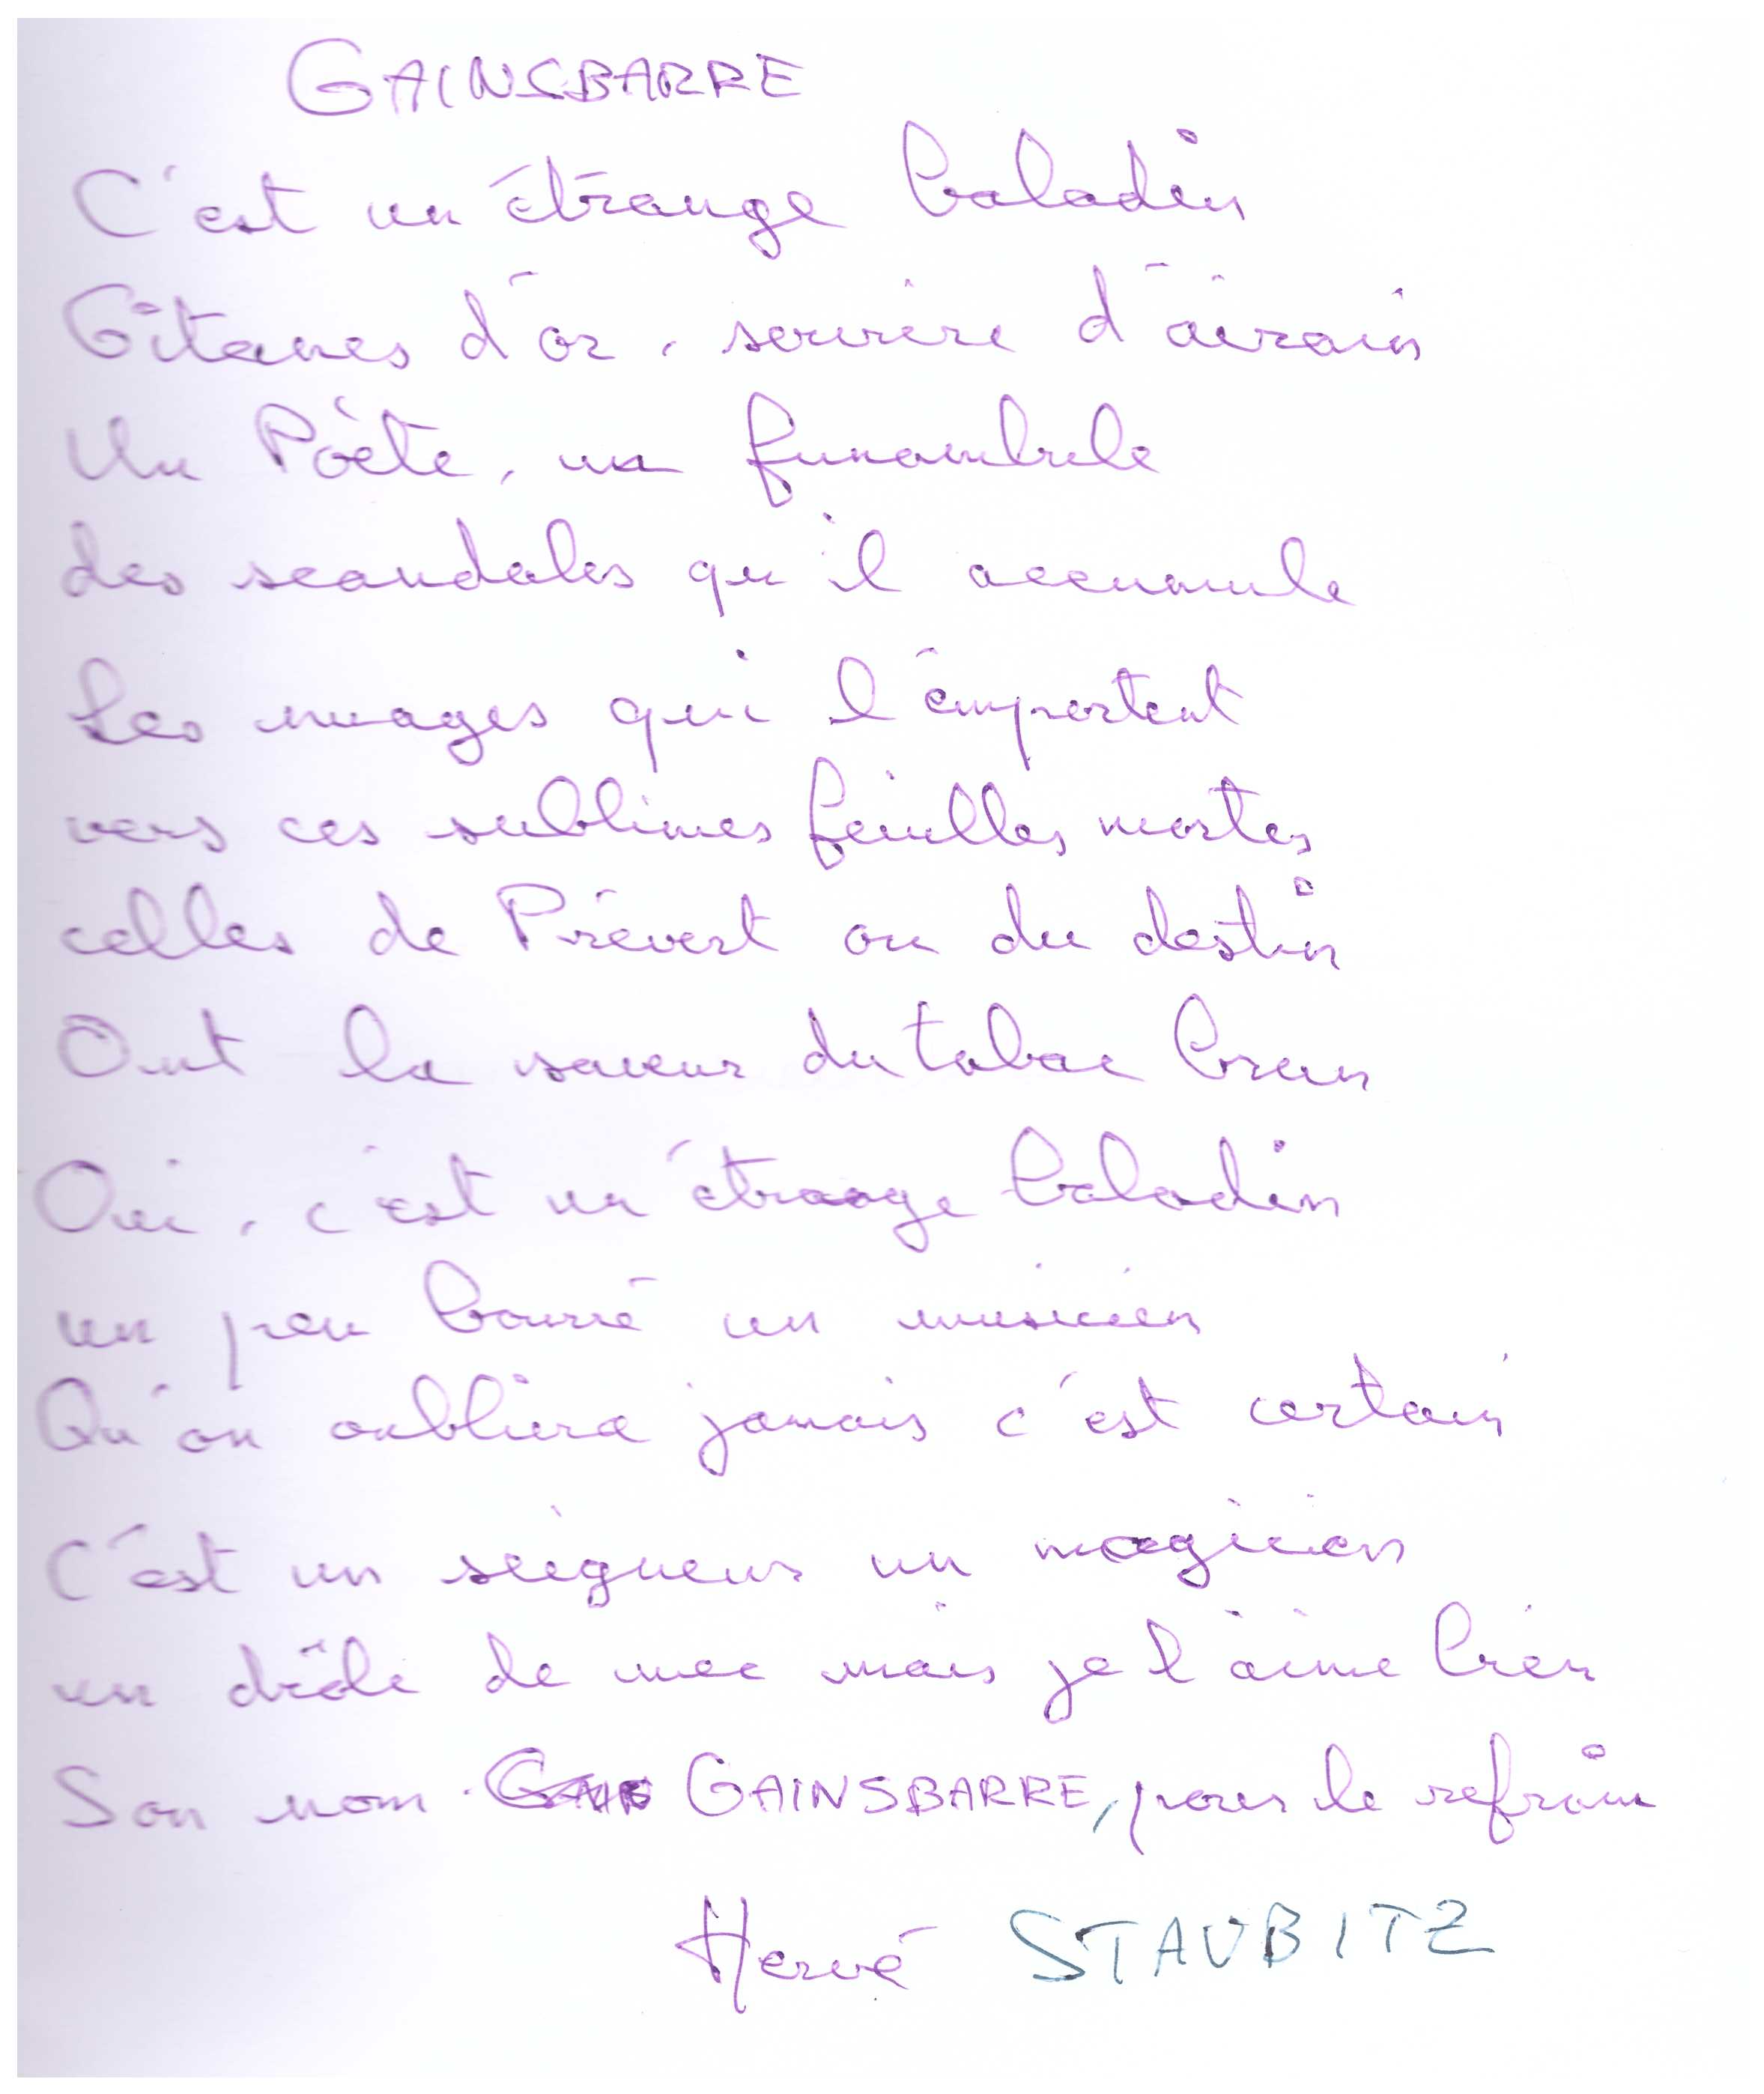 GAINSBARRE
C'est un étrange baladin
Gitanes d'or, sourire d'airain
Un Poète, un funambule
des scandales qu'il accumule
Les nuages qui l'emportent
vers ces sublimes feuilles mortes
celles de Prévert ou du destin
Ont la saveur du tabac brun
Oui, c'est un étrange baladin
un peu bourré un musicien
Qu'on oubliera jamais c'est certain
C'est un seigneur un magicien
un drôle de mec mais je l'aime bien
Son nom GAINSBARRE, pour le refrain
Hervé STAUBITZ